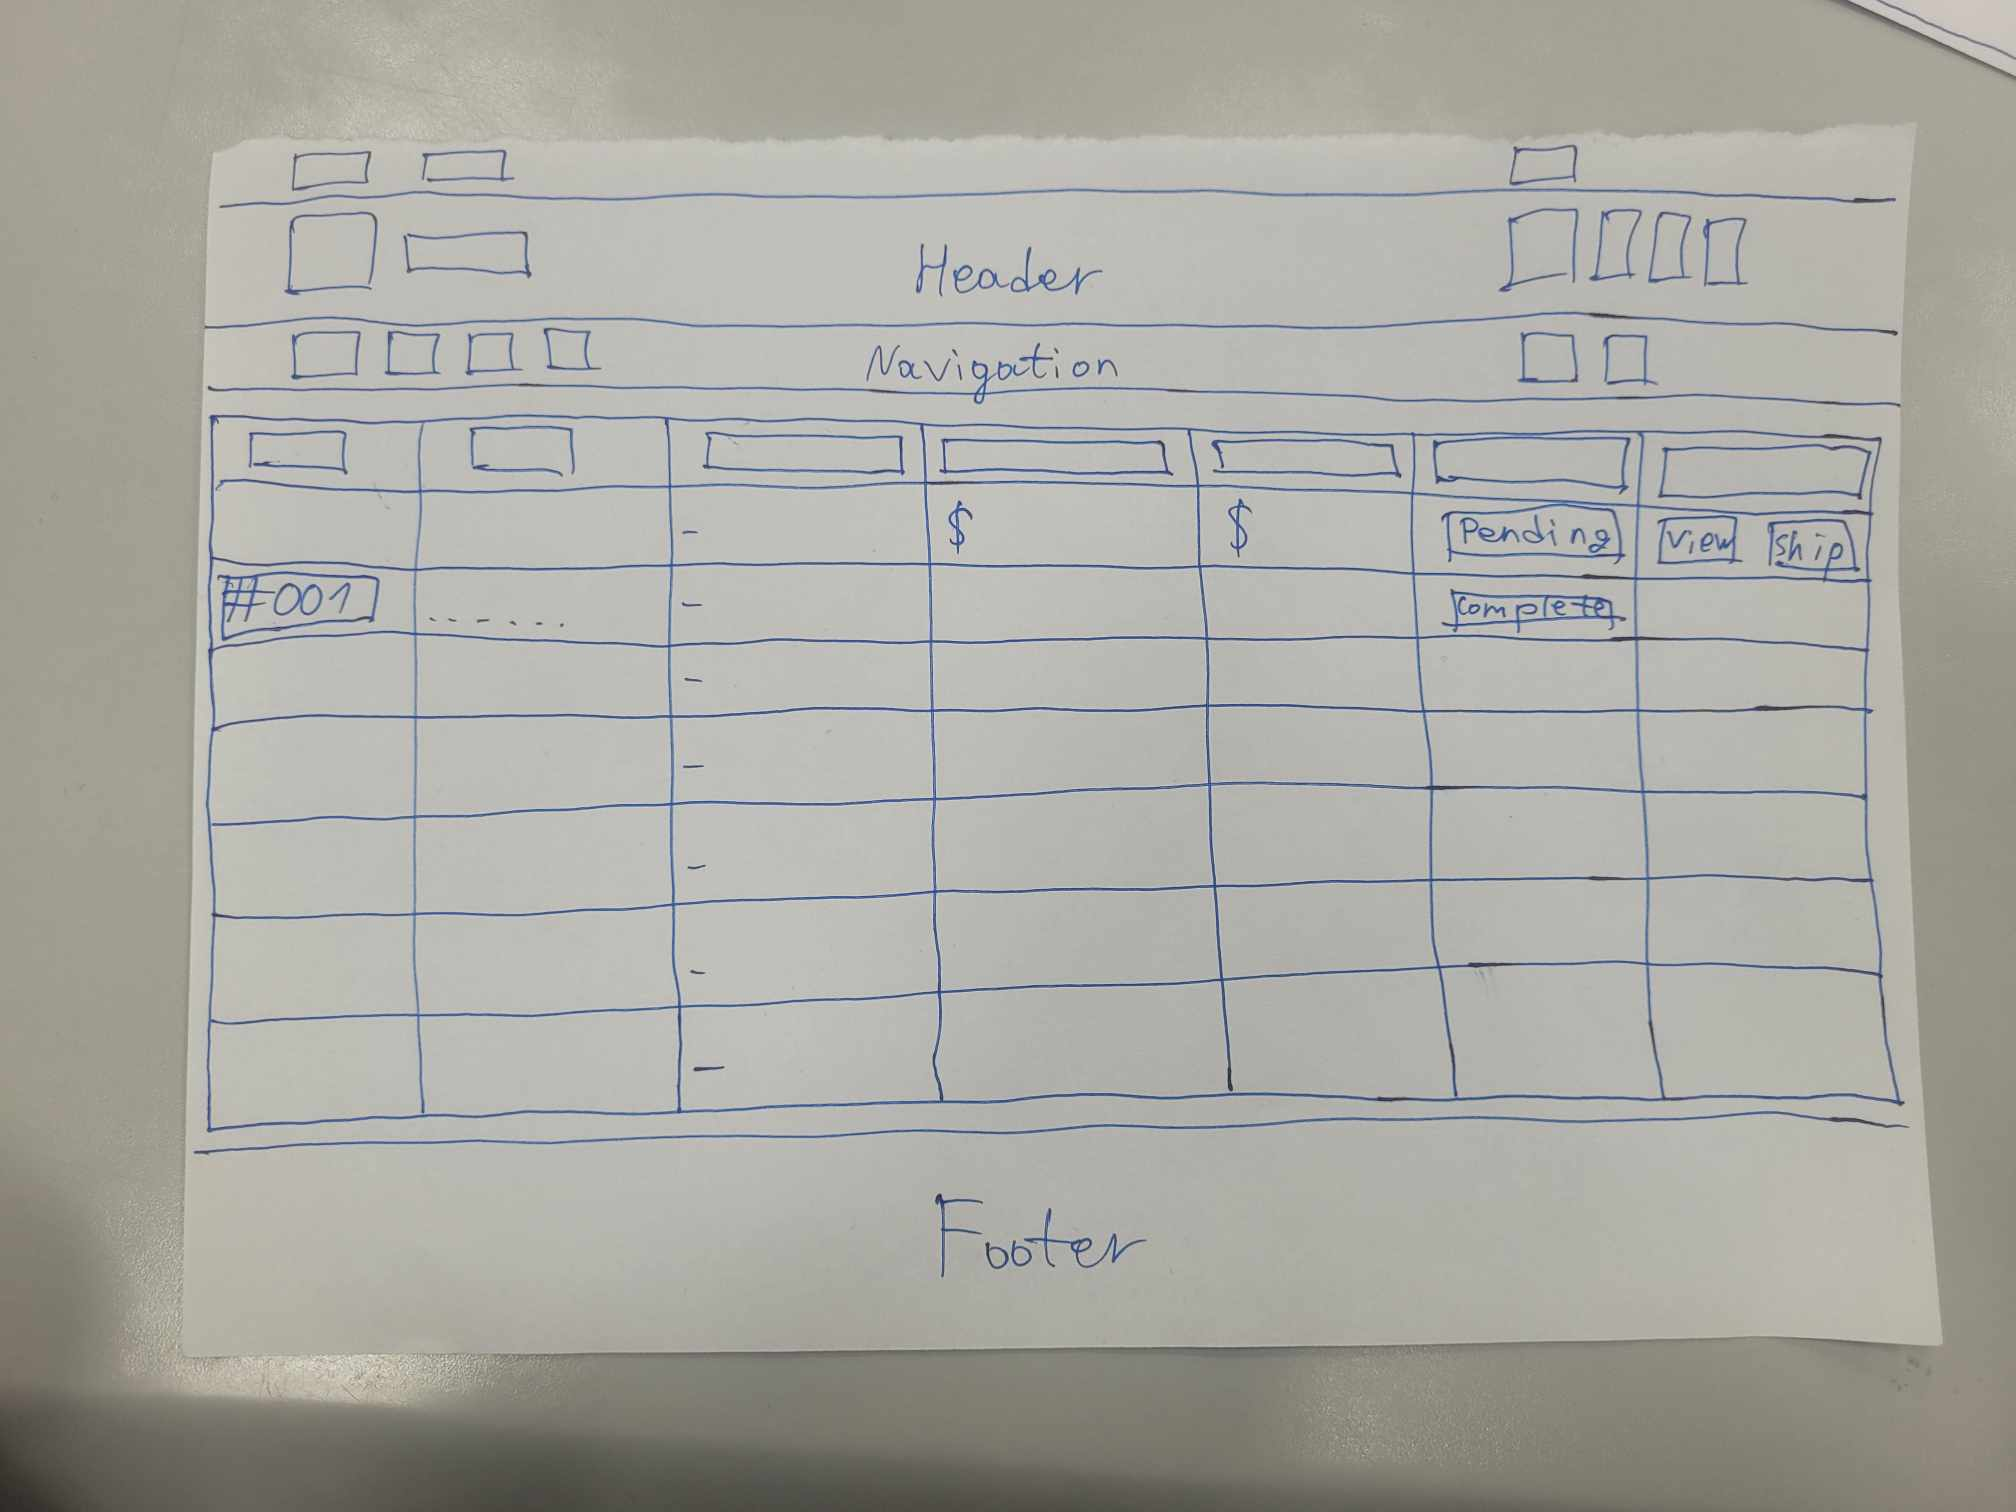 Header
Navigation
- $ $ Pending view ship
#001 ...... - complete
-
-
-
-
-
Footer